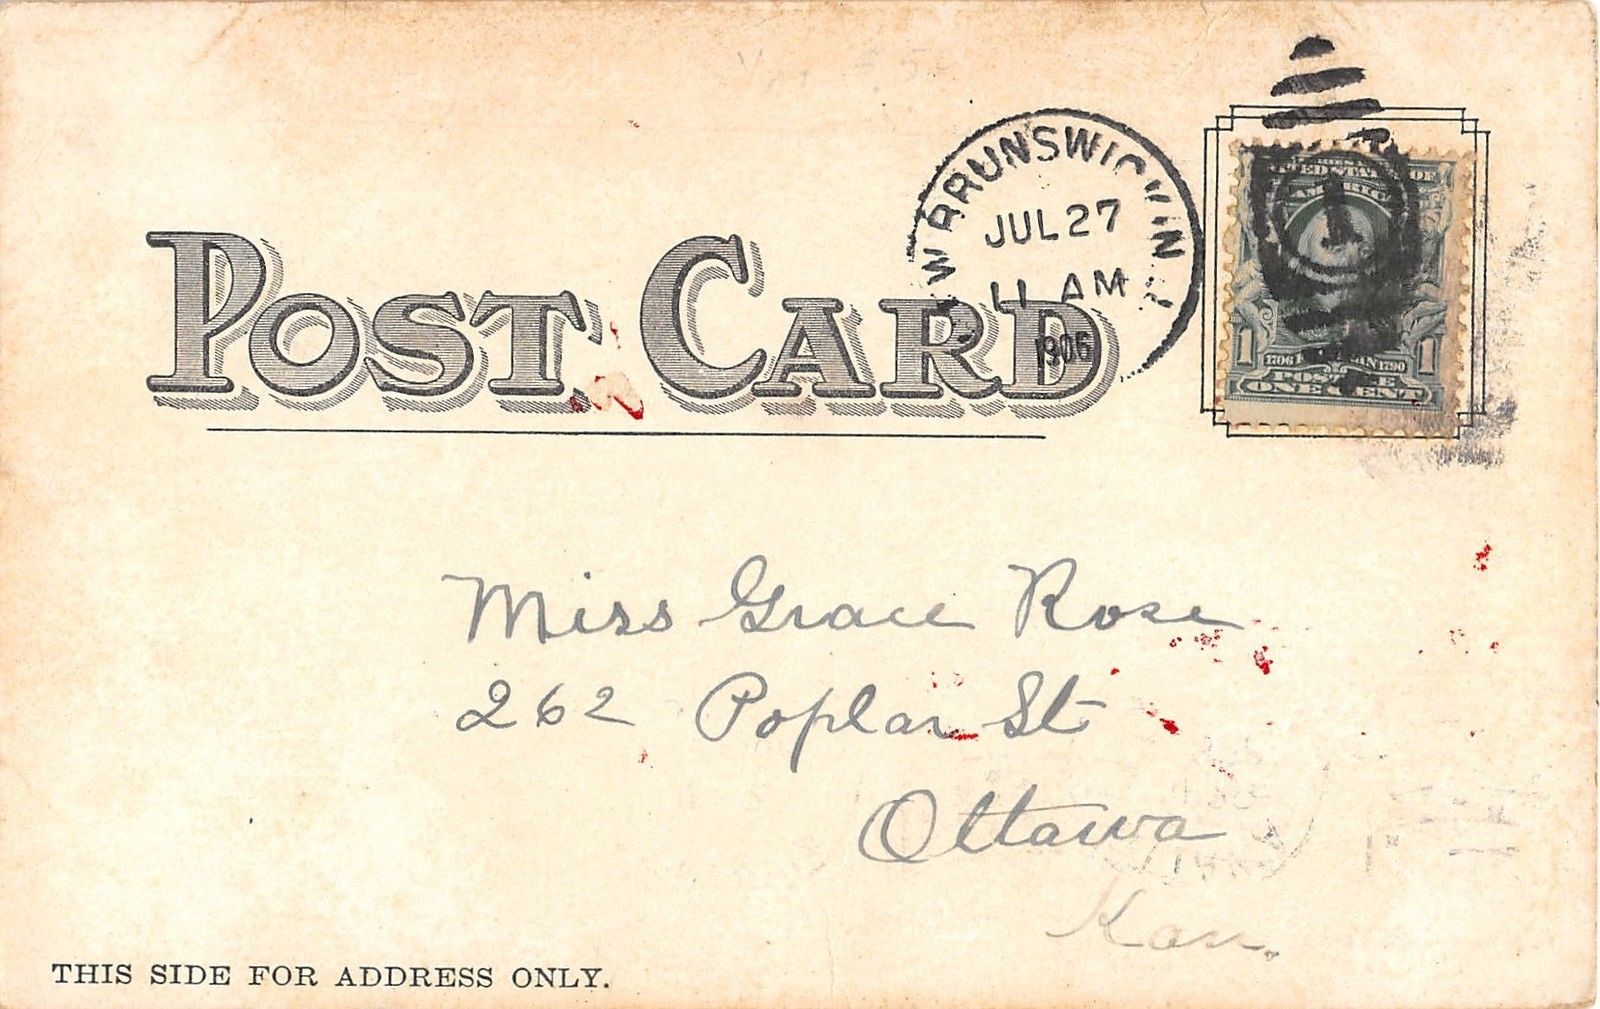 W BRUNSWICK N J
JUL 27
11 AM
1906
UNITED STATES OF
AMERICA
1
1706 FRANKLIN 1790
1
POSTAGE
ONE CENT
POST CARD
Miss Grace Rose
262 Poplar St
Ottawa
Kan.
THIS SIDE FOR ADDRESS ONLY.